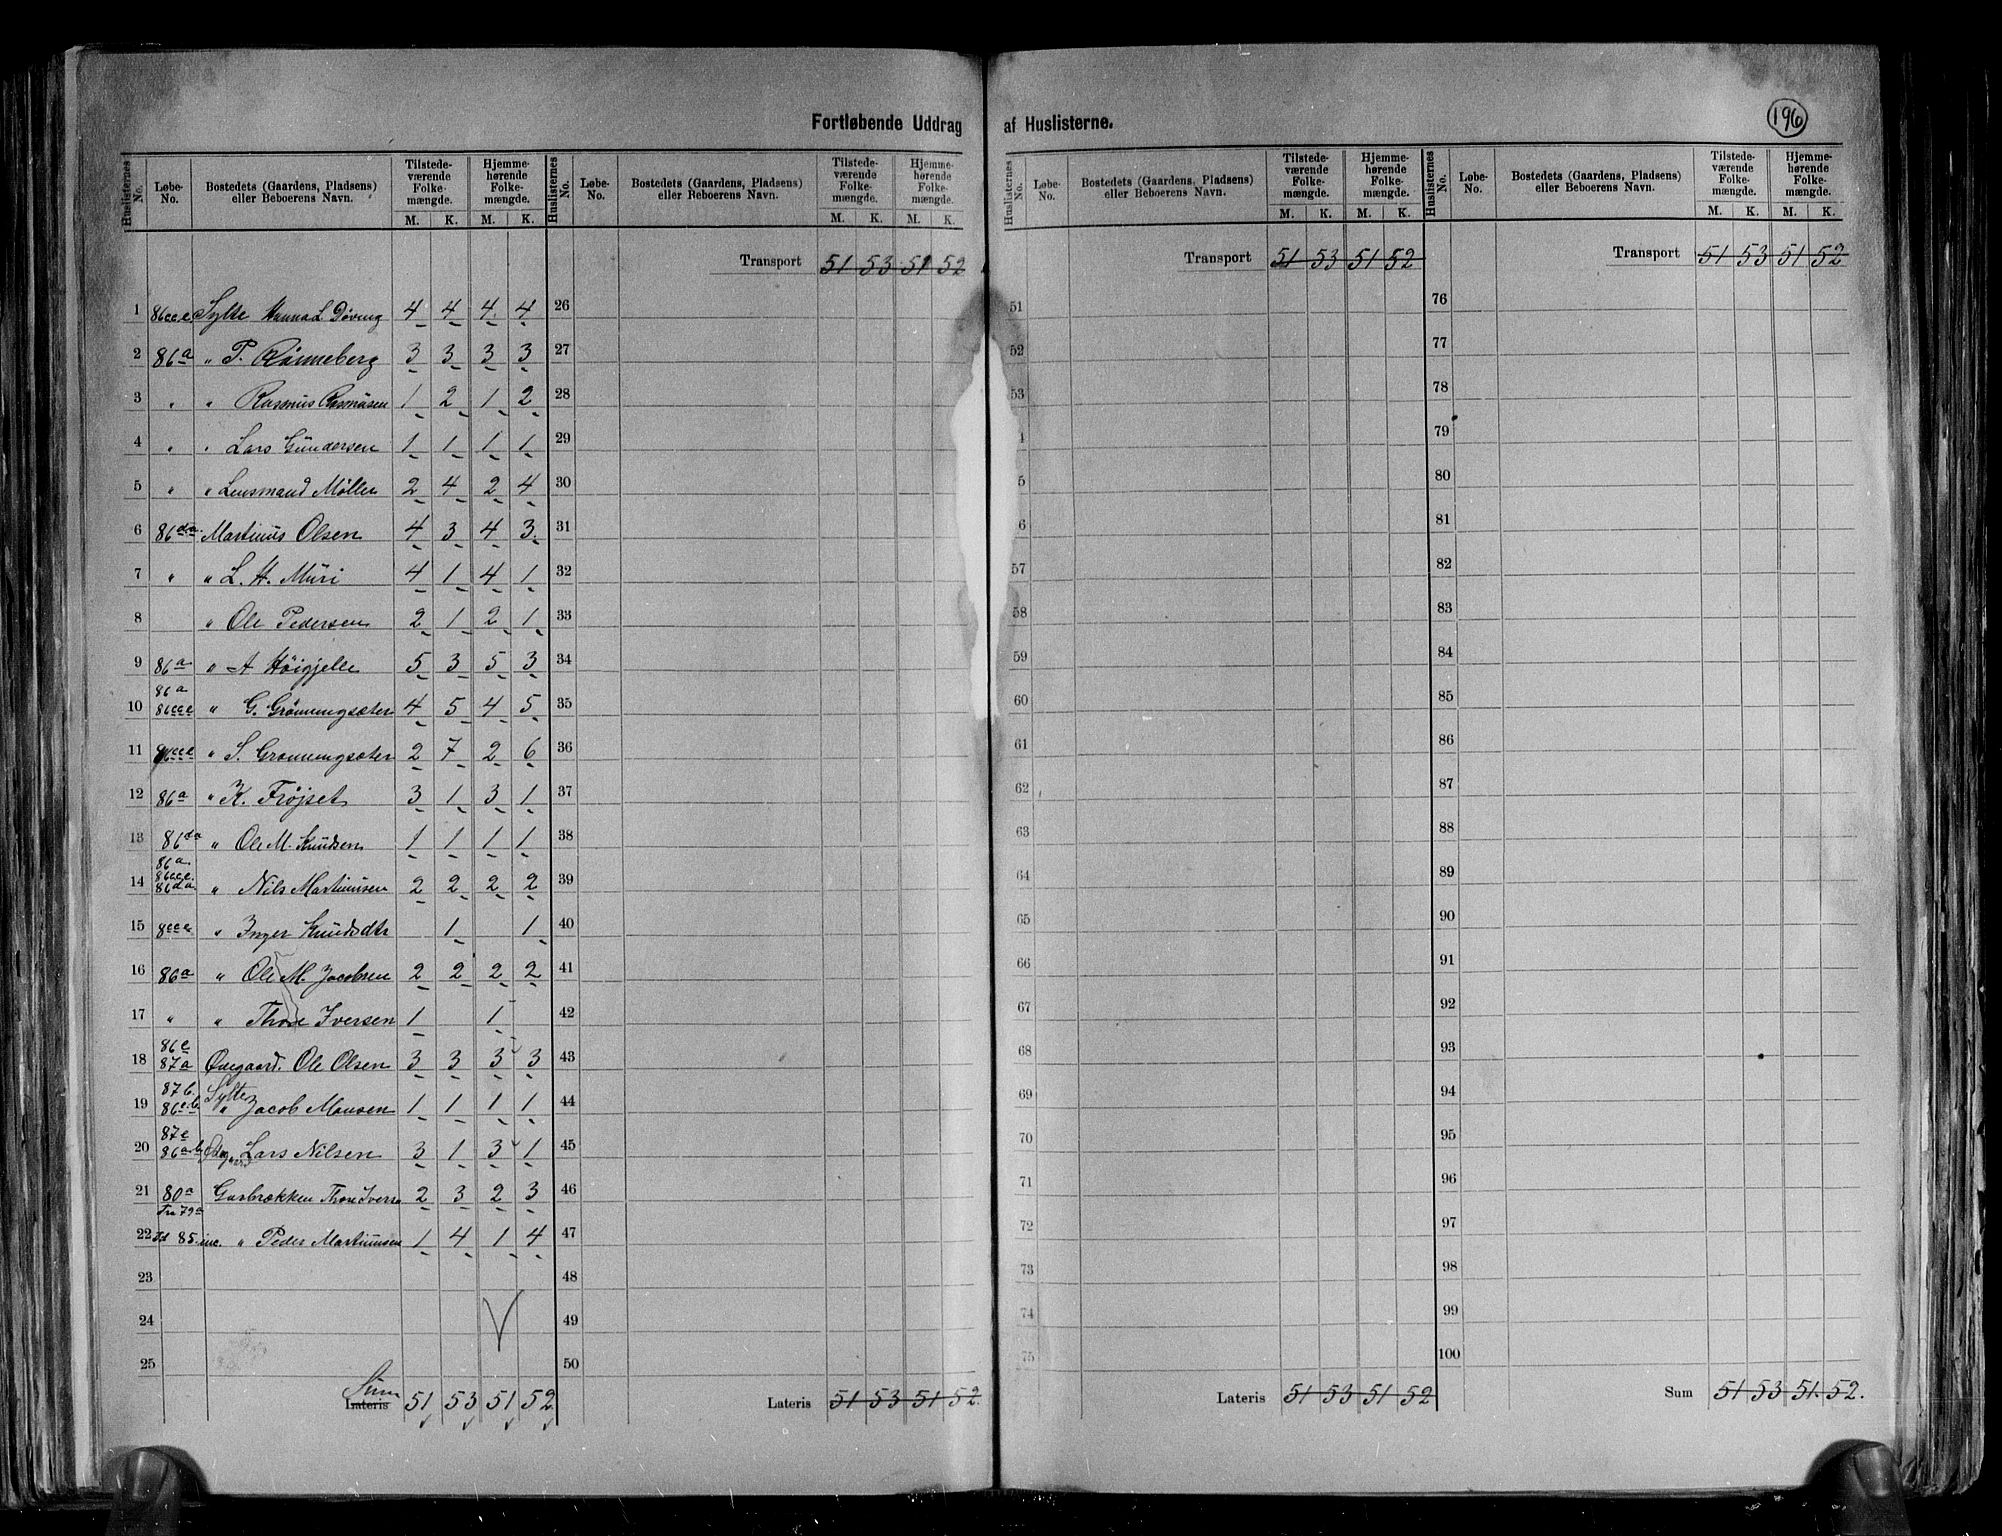 Fortløbende Uddrag af Huslisterne.
196
Huslisternes No. Løbe-No. Bostedets (Gaardens, Pladsens) eller Beboerens Navn. Tilstede-værende Folke-mængde. M. K. Hjemme-hørende Folke-mængde. M. K.
Huslisternes No. Løbe-No. Bostedets (Gaardens, Pladsens) eller Beboerens Navn. Tilstede-værende Folke-mængde. M. K. Hjemme-hørende Folke-mængde. M. K.
Huslisternes No. Løbe-No. Bostedets (Gaardens, Pladsens) eller Beboerens Navn. Tilstede-værende Folke-mængde. M. K. Hjemme-hørende Folke-mængde. M. K.
Huslisternes No. Løbe-No. Bostedets (Gaardens, Pladsens) eller Beboerens Navn. Tilstede-værende Folke-mængde. M. K. Hjemme-hørende Folke-mængde. M. K.
Transport 51 53 51 52 Transport 51 53 51 52 Transport 51 53 51 52
1 86cce Sylte Hanna L. Døving 4 4 4 4 26 51 76
2 86a " P. Rönneberg 3 3 3 3 27 52 77
3 " " Rasmus Rasmusen 1 2 1 2 28 53 78
4 " " Lars Gundersen 1 1 1 1 29 4 79
5 " " Lensmand Møller 2 4 2 4 30 5 80
6 86da Martinus Olsen 4 3 4 3 31 6 81
7 " " L. H. Muri 4 1 4 1 32 57 82
8 " Ole Pedersen 2 1 2 1 33 58 83
9 86a " A Höigjelle 5 3 5 3 34 59 84
86a
10 86cce " G. Grönningsæter 4 5 4 5 35 60 85
11 " S. Grönningsæter 2 7 2 6 36 61 86
12 86a " K. Frøjset 3 1 3 1 37 62 87
13 86da " Ole M. Knudsen 1 1 1 1 38 63 88
86a
86cce
14 86da " Nils Martinusen 2 2 2 2 39 64 89
15 " Inger Knudsdtr 1 1 40 65 90
16 86a " Ole M. Jacobsen 2 2 2 2 41 66 91
17 " " Thore Iversen 1 1 42 67 92
86e
18 87a Ødegaard. Ole Olsen 3 3 3 3 43 68 93
87b Sylte
19 86cb " Jacob Monsen 1 1 1 1 44 69 94
87e
20 86ab Ødegaard Lars Nilsen 3 1 3 1 45 70 95
21 80a Gusbrækken Thore Iversen 2 3 2 3 46 71 96
Fra 79a
22 85 " Peder Martinusen 1 4 1 4 47 72 97
23 48 73 98
24 49 74 99
25 50 75 100
Sum
Lateris 51 53 51 52 Lateris 51 53 51 52. Lateris 51 53 51 52 Sum 51 53 51. 52.